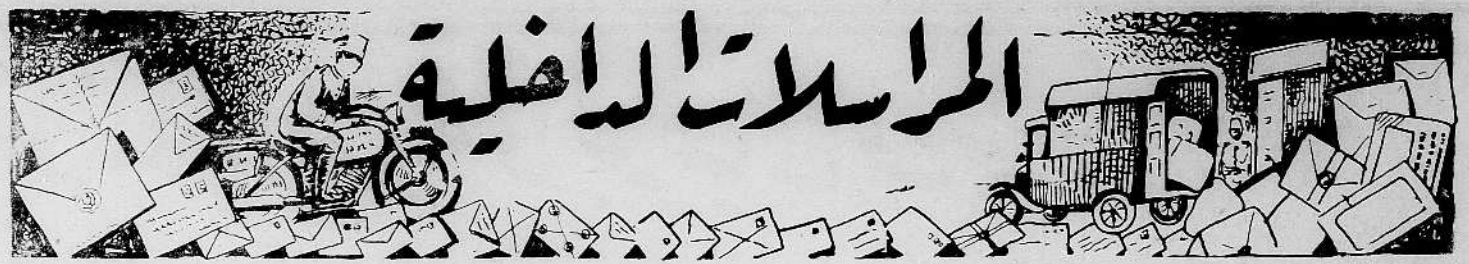 المراسلات الداخلية